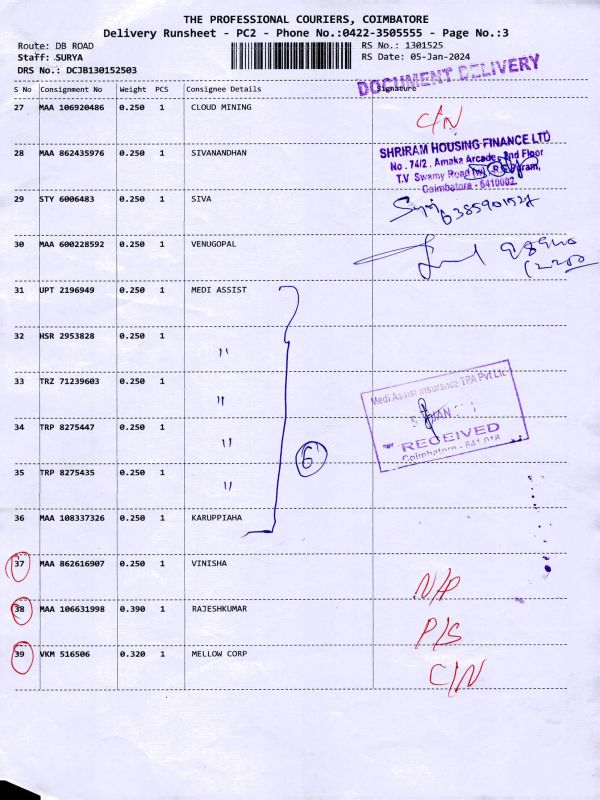 THE PROFESSIONAL COURIERS, COIMBATORE
Delivery Runsheet - PC2 - Phone No.:0422-3505555 - Page No.:3
Route: DB ROAD RS No.: 1301525
Staff: SURYA RS Date: 05-Jan-2024
DRS No.: DCJB130152503
DOCUMENT DELIVERY
S No Consignment No Weight PCS Consignee Details Signature
27 MAA 106920486 0.250 1 CLOUD MINING C/N
28 MAA 862435976 0.250 1 SIVANANDHAN
SHRIRAM HOUSING FINANCE LTD
No. 74/2, Amaka Arcade, 2nd Floor
T.V Swamy Road (W), R.S Puram,
Coimbatore - 6410002.
29 STY 6006483 0.250 1 SIVA
30 MAA 600228592 0.250 1 VENUGOPAL
31 UPT 2196949 0.250 1 MEDI ASSIST
32 HSR 2953828 0.250 1 "
33 TRZ 71239603 0.250 1 "
Medi Assist Insurance TPA Pvt Ltd
JAN
RECEIVED
Coimbatore - 641 018
34 TRP 8275447 0.250 1 "
6
35 TRP 8275435 0.250 1 "
36 MAA 108337326 0.250 1 KARUPPIAHA
37 MAA 862616907 0.250 1 VINISHA N/P
38 MAA 106631998 0.390 1 RAJESHKUMAR P/S
39 VKM 516506 0.320 1 MELLOW CORP C/N